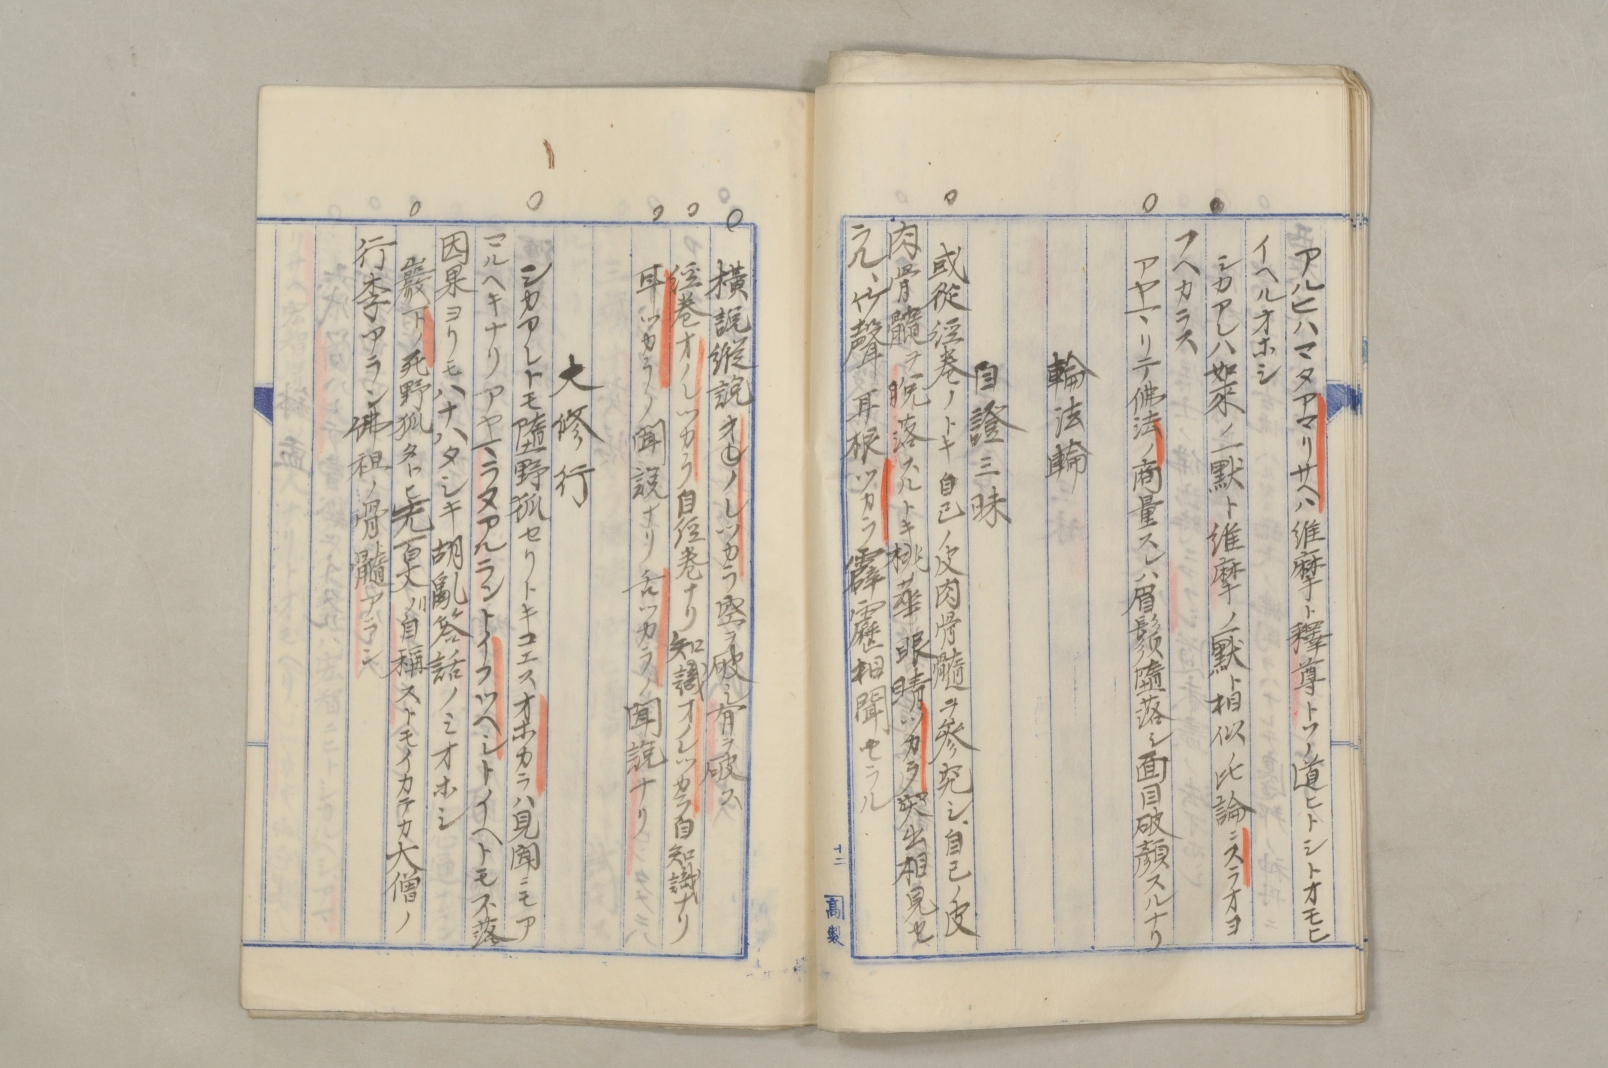 アルヒハマタアマリサヘハ維摩ト釋尊トソノ道ヒトシトオモヒ
イヘルオホシ
シカアレハ如來ノ一默ト維摩ノ一默ト相似ノ比論ニスラオヨ
フヘカラス
アヤマリテ佛法ノ商量スレハ眉鬚墮落シ面目破顏スルナリ
轉法輪
自證三昧
或從經卷ノトキ自己ノ皮肉骨髓ヲ參究シ、自己ノ皮
肉骨髓ヲ脫落スルトキ桃華眼睛ツカラ突出相見セ
ラル、竹聲耳根ツカラ霹靂相聞セラル
十二
高製
橫說縱說オノレツカラ空ヲ破シ有ヲ破ス
經卷オノレツカラ自經卷ナリ知識オノレツカラ自知識ナリ
耳ツカラノ聞說ナリ舌ツカラノ聞說ナリ
大修行
シカアレトモ墮野狐セリトキコエスオホカラハ見聞ニモア
マルヘキナリアヤマラタアルラントイフツヘシトイヘトモ不落
因果ヨリモハナハタシキ胡亂答話ノミオホシ
巖下ノ死野狐タトヒ先百丈ノ自稱ストモイカテカ大僧ノ
行李アラン佛祖ノ骨髓アラン